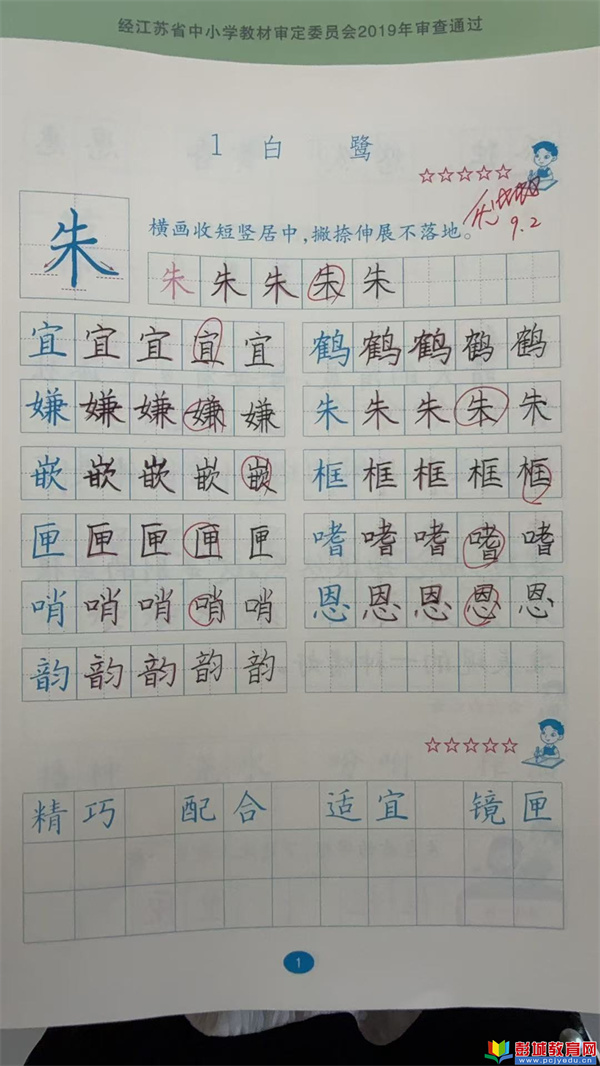 经江苏省中小学教材审定委员会2019年审查通过
1 白 鹭
☆☆☆☆☆
朱
横画收短竖居中，撇捺伸展不落地。
9.2
朱 朱 朱 朱 朱
宜 宜 宜 宜 宜 鹤 鹤 鹤 鹤 鹤
嫌 嫌 嫌 嫌 嫌 朱 朱 朱 朱 朱
嵌 嵌 嵌 嵌 嵌 框 框 框 框 框
匣 匣 匣 匣 匣 嗜 嗜 嗜 嗜 嗜
哨 哨 哨 哨 哨 恩 恩 恩 恩 恩
韵 韵 韵 韵 韵
☆☆☆☆☆
精巧 配合 适宜 镜匣
1
彭城教育网
www.pcjyedu.cn